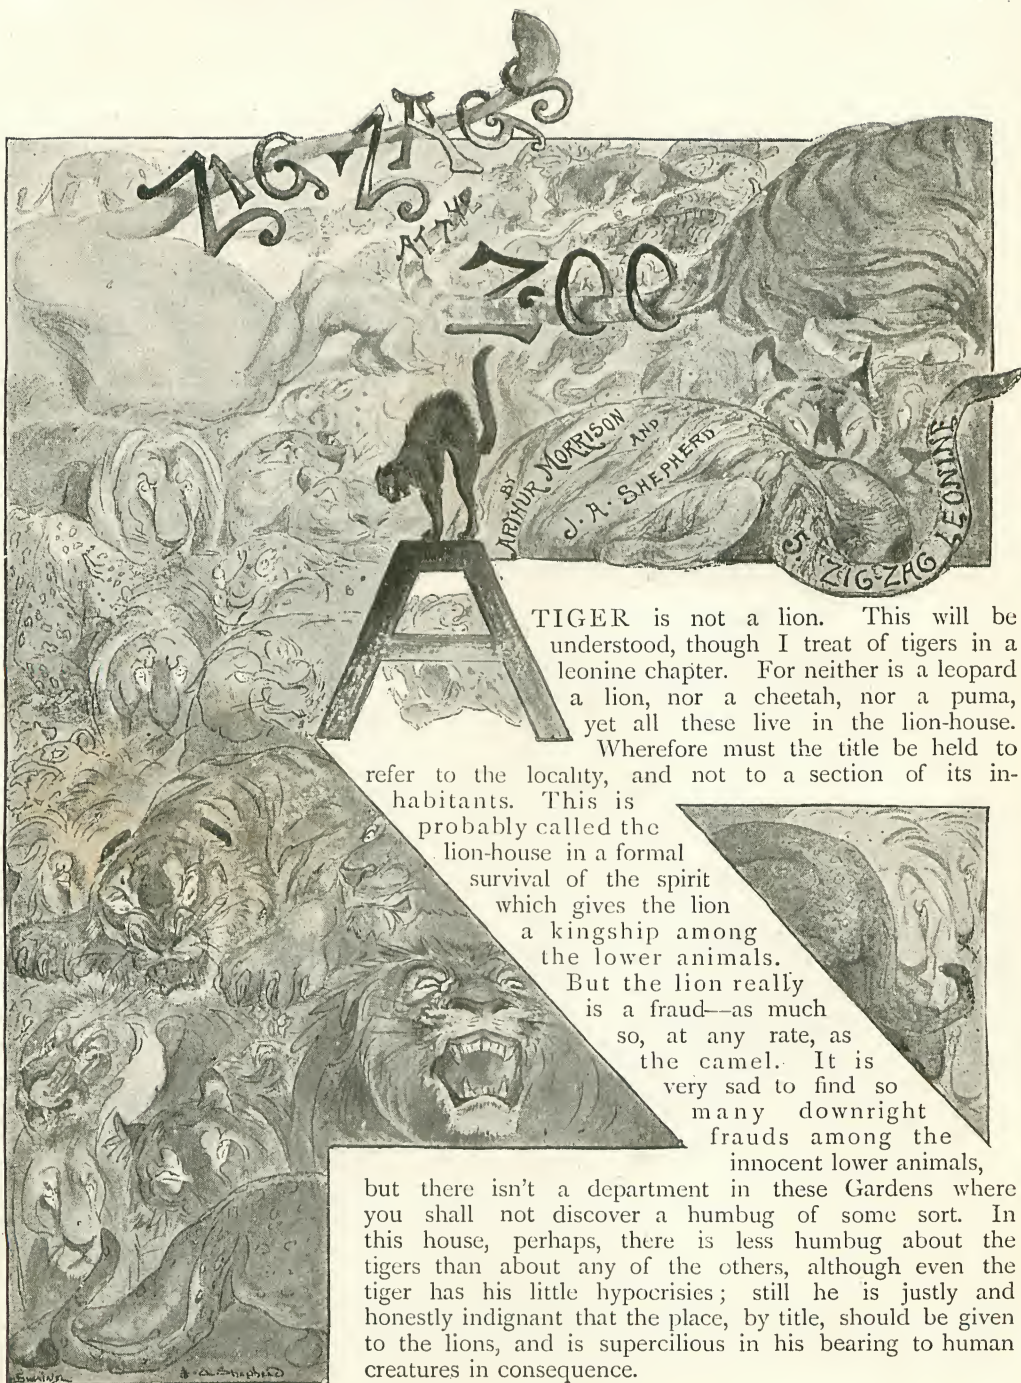 ZIG-ZAGS
AT THE
ZOO
BY
ARTHUR MORRISON
AND
J. A. SHEPHERD
5. ZIGZAG LEONINE
A TIGER is not a lion. This will be
understood, though I treat of tigers in a
leonine chapter. For neither is a leopard
a lion, nor a cheetah, nor a puma,
yet all these live in the lion-house.
Wherefore must the title be held to
refer to the locality, and not to a section of its in-
habitants. This is
probably called the
lion-house in a formal
survival of the spirit
which gives the lion
a kingship among
the lower animals.
But the lion really
is a fraud—as much
so, at any rate, as
the camel. It is
very sad to find so
many downright
frauds among the
innocent lower animals,
but there isn't a department in these Gardens where
you shall not discover a humbug of some sort. In
this house, perhaps, there is less humbug about the
tigers than about any of the others, although even the
tiger has his little hypocrisies; still he is justly and
honestly indignant that the place, by title, should be given
to the lions, and is supercilious in his bearing to human
creatures in consequence.
J. A. Shepherd